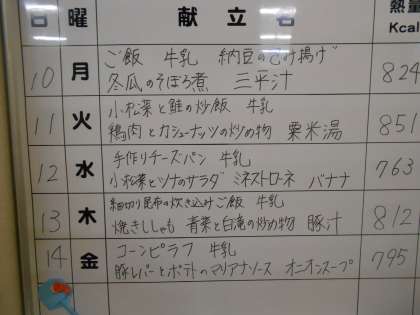 日 曜 献立名 熱量 Kcal
10 月 ご飯 牛乳 納豆の包み揚げ 824
冬瓜のそぼろ煮 三平汁
11 火 小松菜と鮭の炒飯 牛乳 851
鶏肉とカシューナッツの炒め物 粟米湯
12 水 手作りチーズパン 牛乳 763
小松菜とツナのサラダ ミネストローネ バナナ
13 木 細切り昆布の炊き込みご飯 牛乳 812
焼きししゃも 青菜と白滝の炒め物 豚汁
14 金 コーンピラフ 牛乳 795
豚レバーとポテトのマリアナソース オニオンスープ